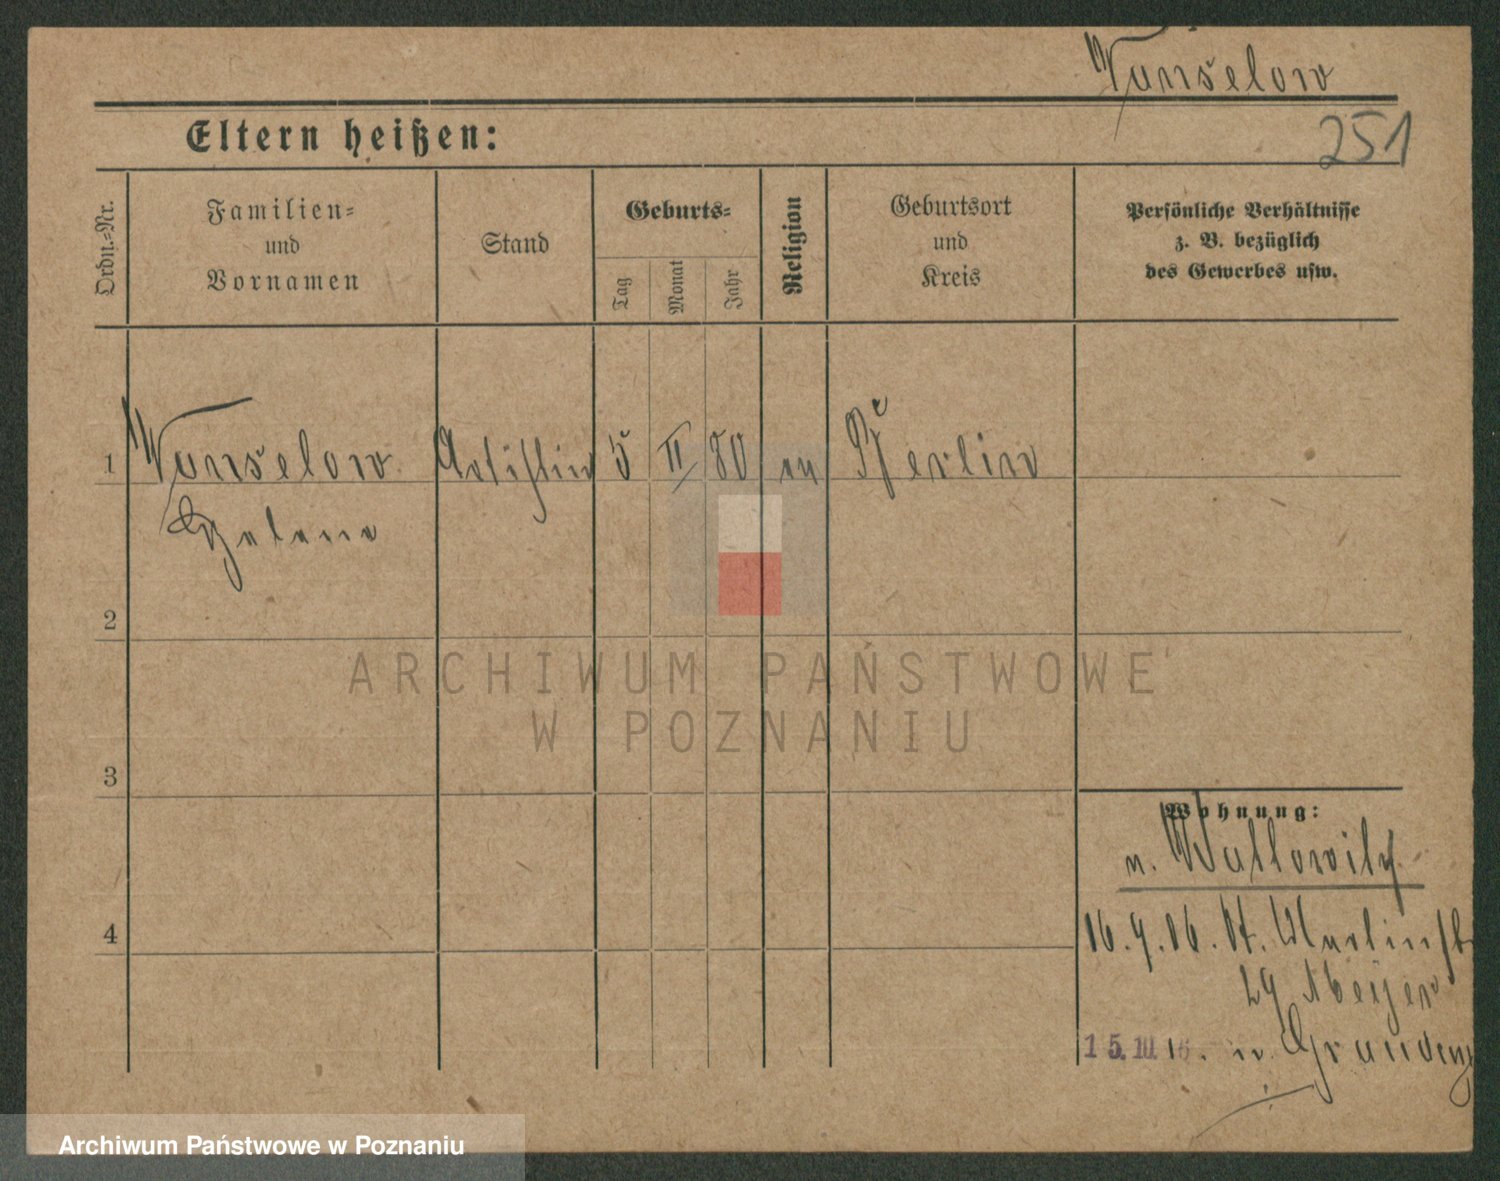 Wanselow
251
Eltern heißen:
Ordn.=Nr.
Familien=
und
Vornamen
Stand
Geburts=
Tag
Monat
Jahr
Religion
Geburtsort
und
Kreis
Persönliche Verhältnisse
z. B. bezüglich
des Gewerbes usw.
1 Wanselow Artistin 5 II 80 Berlin
Helene
2
3
4
Wohnung:
16.
15. III 16. n. Graudenz
ARCHIWUM PAŃSTWOWE
W POZNANIU
Archiwum Państwowe w Poznaniu